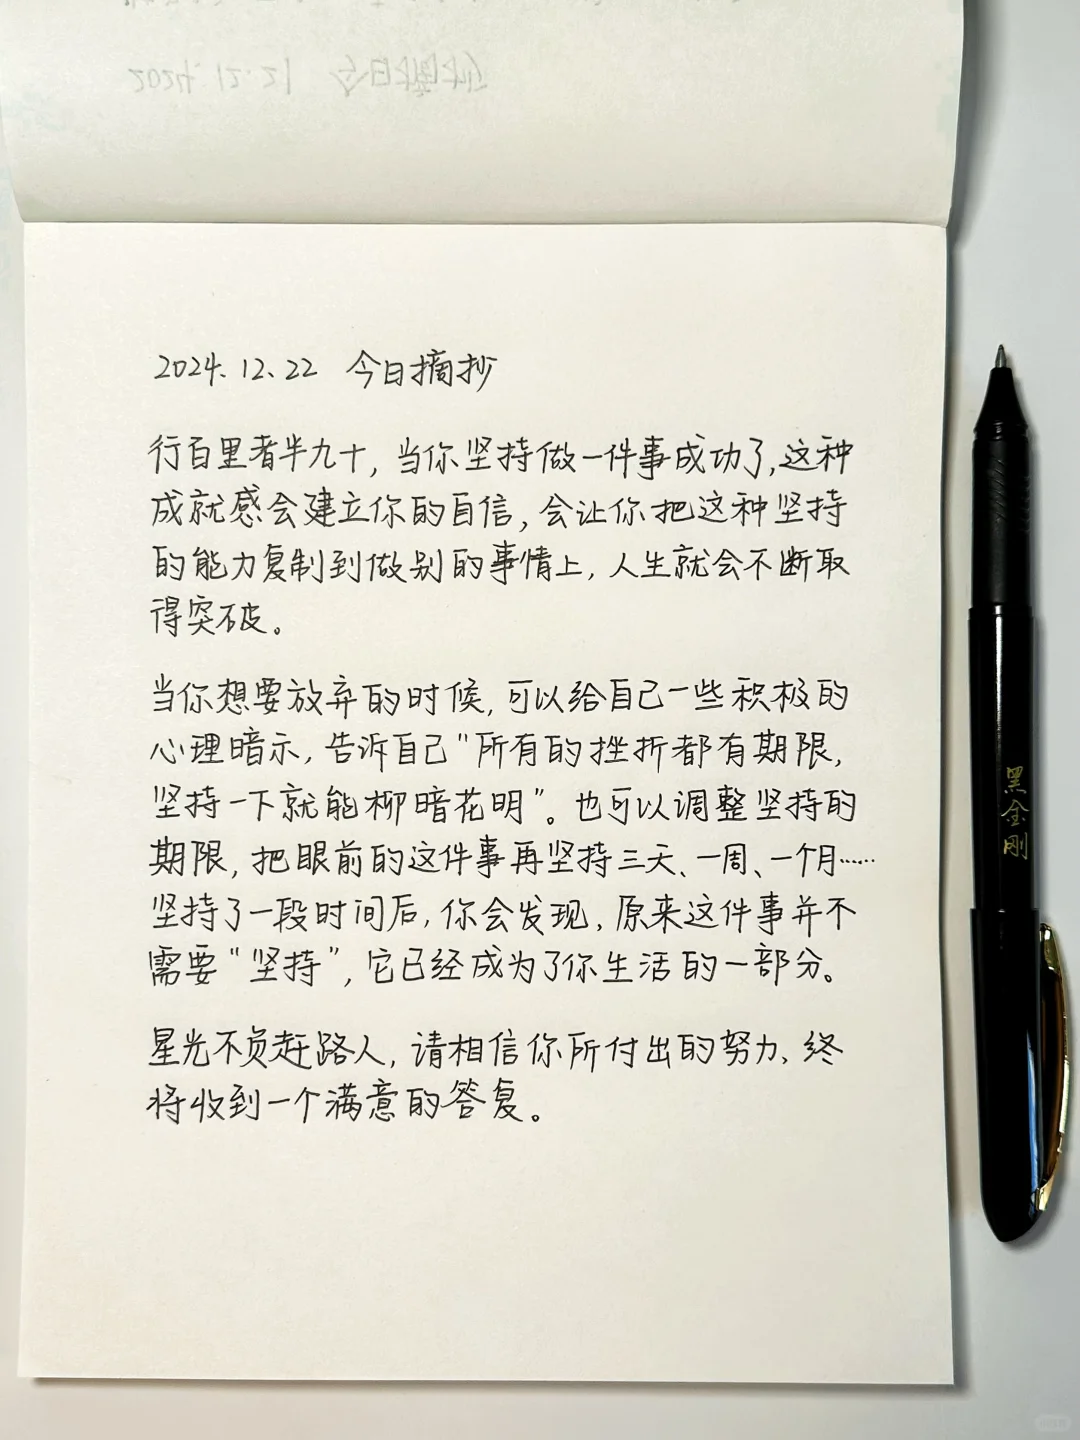 2024.12.21 今日摘抄
2024.12.22 今日摘抄
行百里者半九十，当你坚持做一件事成功了，这种
成就感会建立你的自信，会让你把这种坚持
的能力复制到做别的事情上，人生就会不断取
得突破。
当你想要放弃的时候，可以给自己一些积极的
心理暗示，告诉自己“所有的挫折都有期限，
坚持一下就能柳暗花明”。也可以调整坚持的
期限，把眼前的这件事再坚持三天、一周、一个月……
坚持了一段时间后，你会发现，原来这件事并不
需要“坚持”，它已经成为了你生活的一部分。
星光不负赶路人，请相信你所付出的努力、终
将收到一个满意的答复。
黑金刚